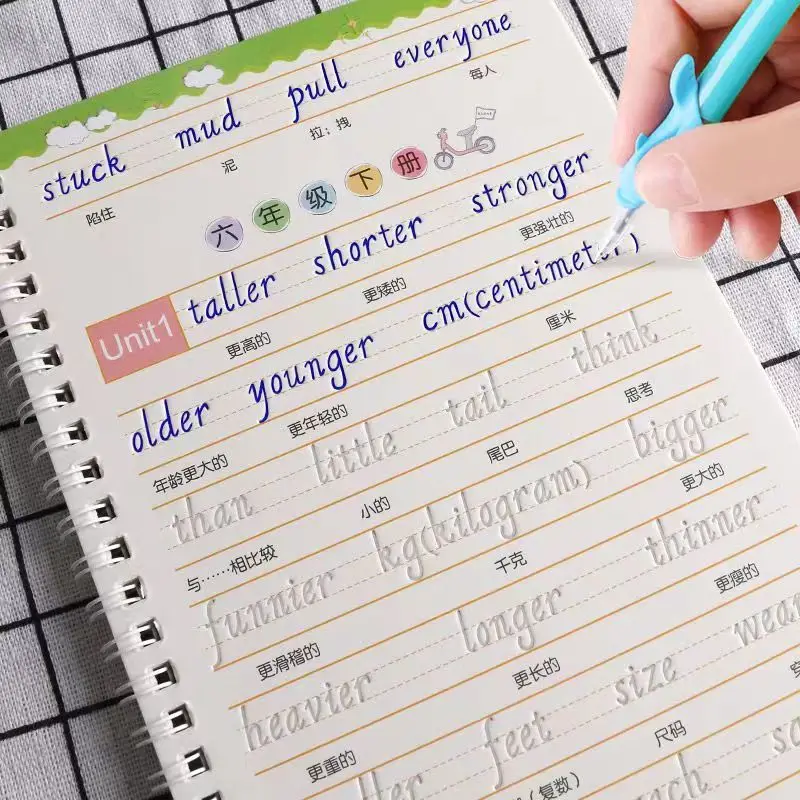 stuck mud pull everyone
陷住 泥 拉；拽 每人
六年级下册
Unit1 taller shorter stronger
更高的 更矮的 更强壮的
older younger cm(centimeter)
年龄更大的 更年轻的 厘米
than little tail think
与……相比较 小的 尾巴 思考
funnier kg(kilogram) bigger
更滑稽的 千克 更大的
heavier longer thinner
更重的 更长的 更瘦的
feet size wear
（复数） 尺码